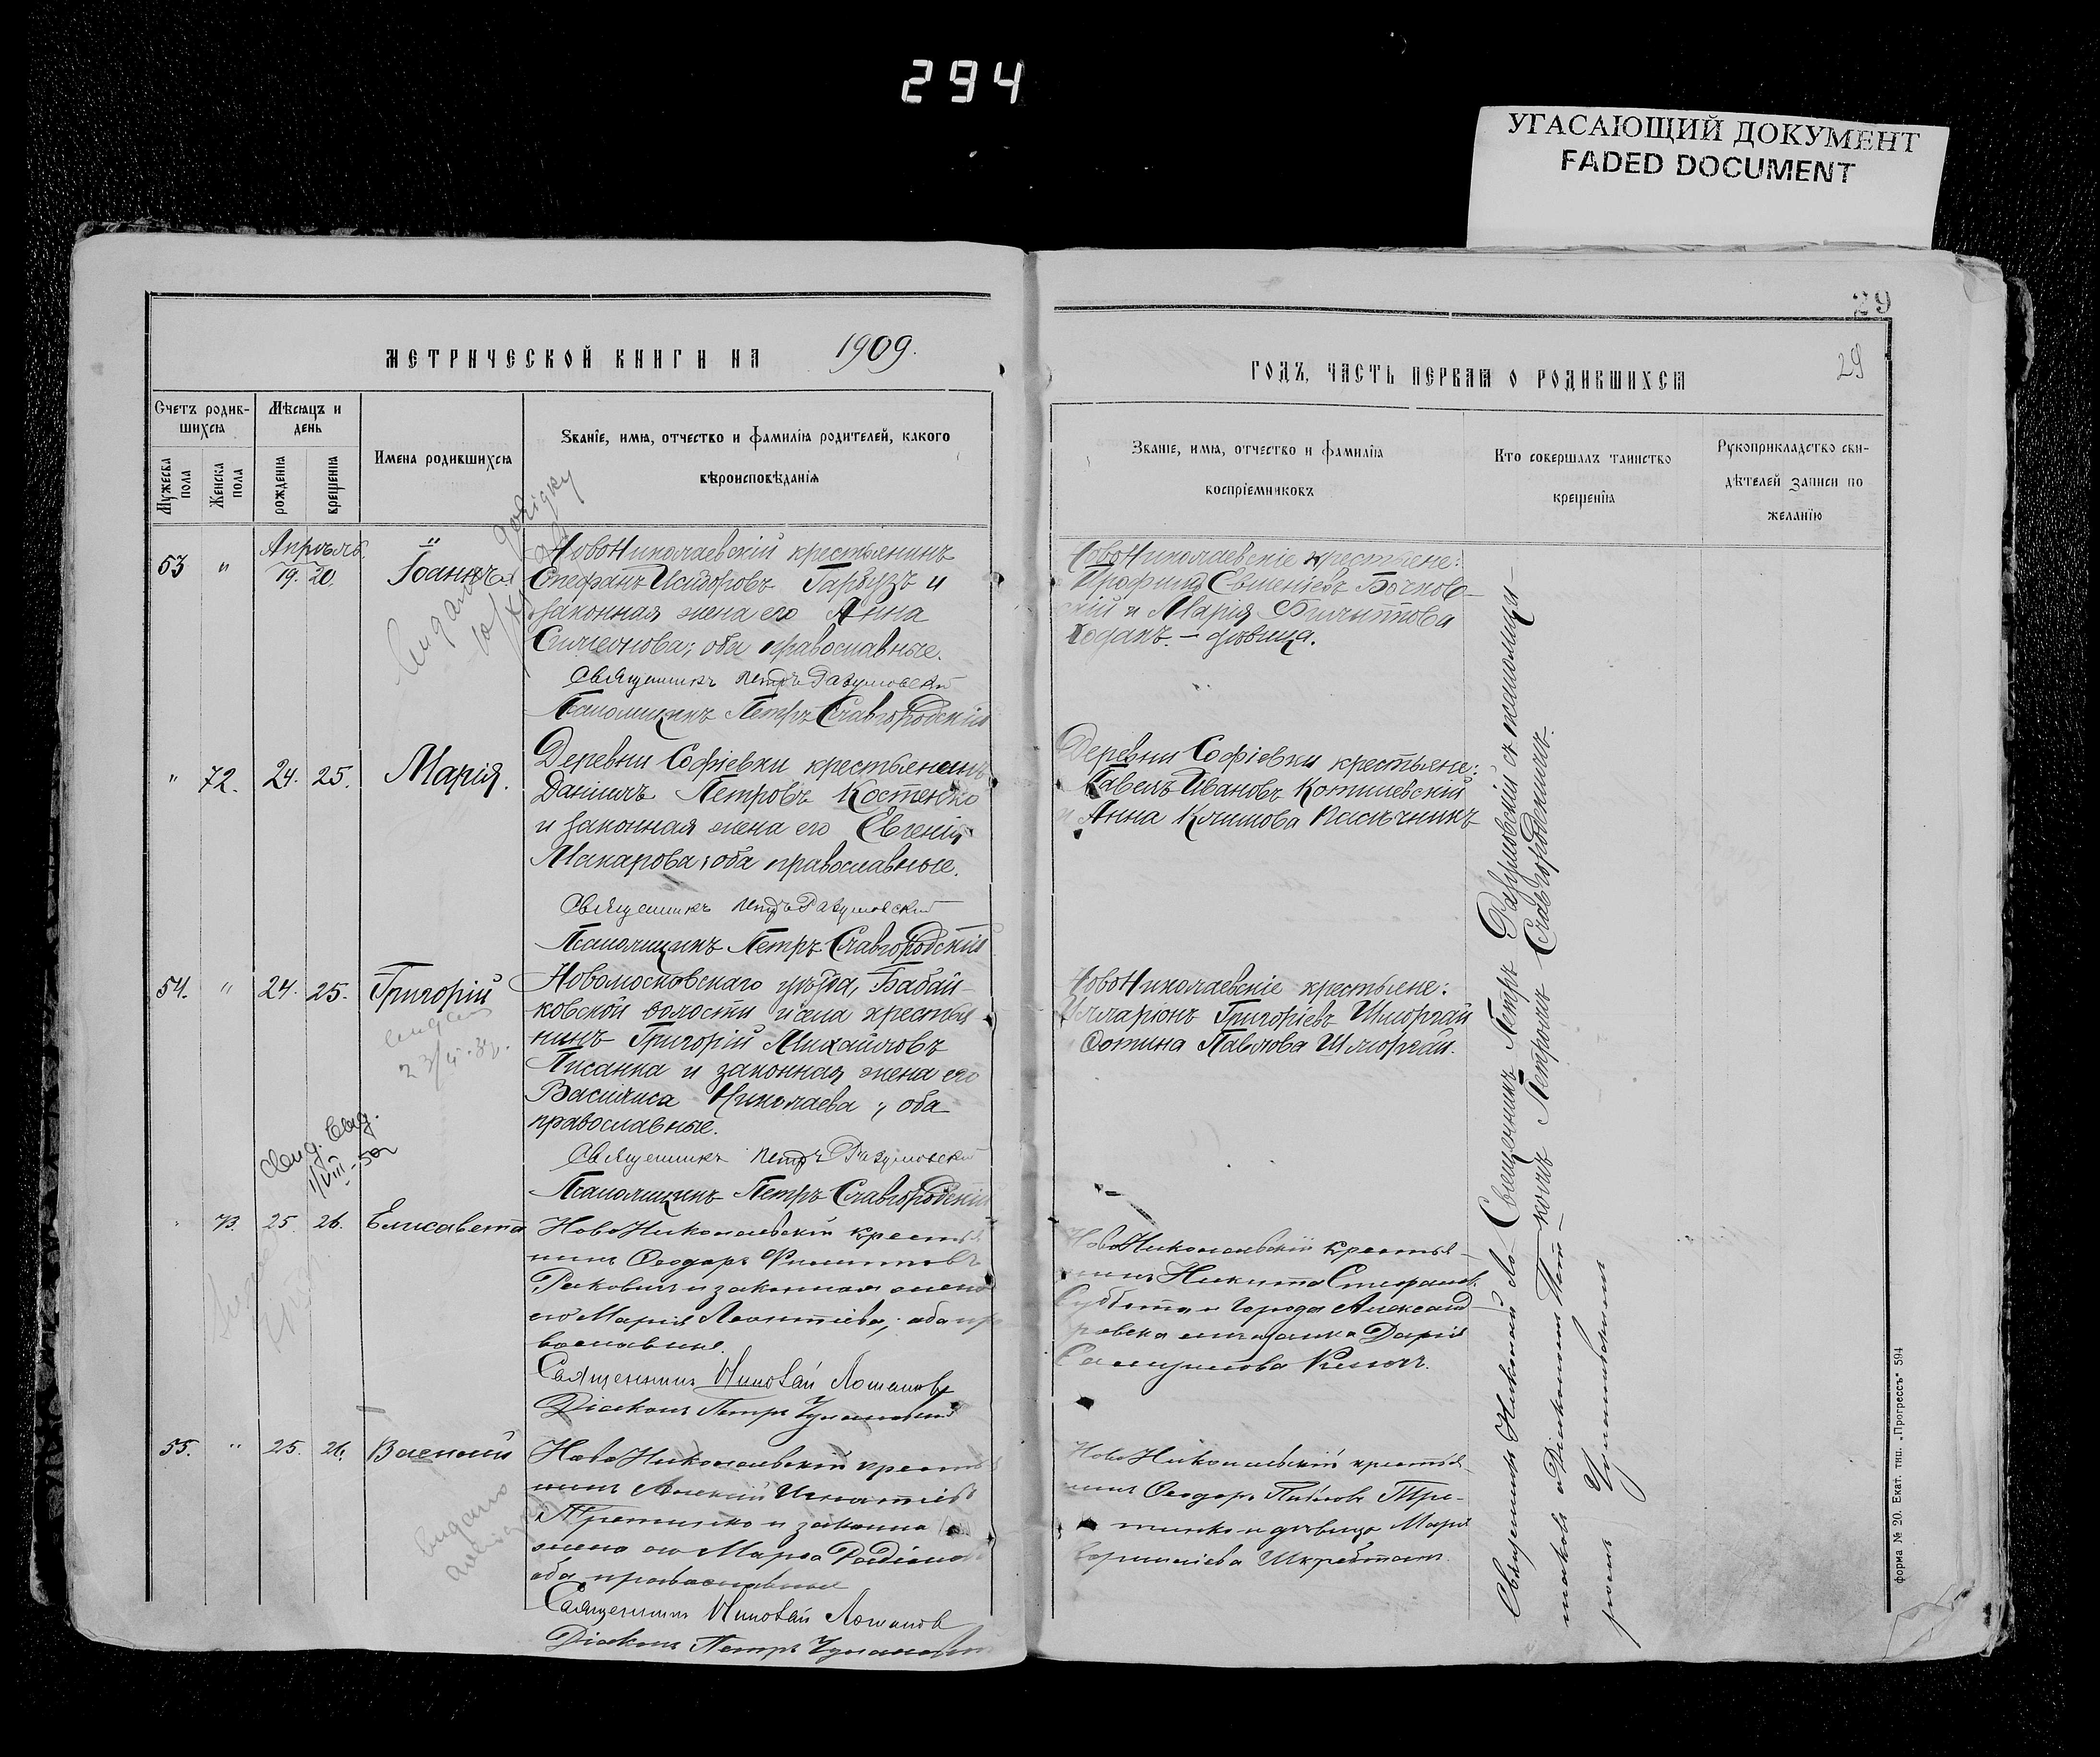 294
УГАСАЮЩИЙ ДОКУМЕНТ
FADED DOCUMENT
МЕТРИЧЕСКОЙ КНИГИ НА 1909.
Счетъ родив-
шихся
Мѣсяцъ и
день
Мужеска
пола
Женска
пола
рожденія
крещенія
Имена родившихся
Званіе, имя, отчество и фамилія родителей, какого
вѣроисповѣданія
Апрѣль.
53 " 19. 20. Іоаннъ
НовоНиколаевскій крестьянинъ
Стефанъ Исидоровъ Гарбузъ и
законная жена его Анна
Симеонова; оба православные.
Священникъ Петръ Разумовскій
Псаломщикъ Петръ Славгородскій
" 72. 24. 25. Марія.
Деревни Софіевки крестьянинъ
Даніилъ Петровъ Костенко
и законная жена его Евгенія
Макарова; оба православные.
Священникъ Петръ Разумовскій
Псаломщикъ Петръ Славгородскій
54. " 24. 25. Григорій
Новомосковскаго уѣзда, Бабай-
ковской волости и села крестья
нинъ Григорій Михайловъ
Писанка и законная жена его
Василиса Николаева; оба
православные.
Священникъ Петръ Разумовскій
Псаломщикъ Петръ Славгородскій
1/VIII-50
73. 25. 26. Елисавета
НовоНиколаевскій крестья
нинъ Ѳеодоръ Филипповъ
Раковичъ и законная жена
его Марія Леонтіева; оба пра
вославные.
Священникъ Николай Лошаковъ
Діаконъ Петръ
55. " 25. 26. Василій
НовоНиколаевскій крестья
нинъ Алексій Игнатіевъ
и законная
жена его Марѳа Родіонова
оба православные
Священникъ Николай Лошаковъ
Діаконъ Петръ
29
ГОДЪ, ЧАСТЬ ПЕРВАЯ О РОДИВШИХСЯ
29
Званіе, имя, отчество и фамилія
воспріемниковъ
Кто совершалъ таинство
крещенія
Рукоприкладство сви-
дѣтелей записи по
желанію
НовоНиколаевскіе крестьяне:
Трофимъ Евменіевъ Бочков-
скій и Марія Филиппова
Ходакъ. — дѣвица.
Деревни Софіевки крестьяне:
Павелъ Ивановъ Котилевскій
и Анна Климова Пасѣчникъ
НовоНиколаевскіе крестьяне:
Илларіонъ Григоріевъ Шморгай
Фотина Павлова Шморгай.
НовоНиколаевскій крестья-
нинъ Никита Стефановъ
Суббота и города Александ-
ровска мѣщанка Дарія
НовоНиколаевскій крестья
нинъ Ѳеодоръ Павловъ
и дѣвица Марія
Священникъ Петръ Разумовскій съ псаломщи-
комъ Петромъ Славгородскимъ.
Священникъ Николай Ло-
шаковъ и Діаконъ Пет-
ромъ
форма № 20. Екат. тип. „Прогрессъ" 594